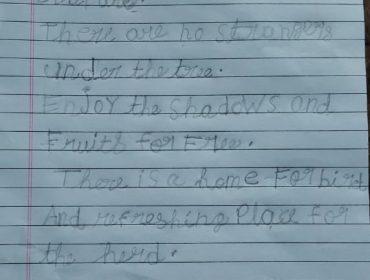 There are no strangers
under the tree.
Enjoy the shadows and
Fruits for Free.
There is a home For bird
And refreshing Place for
the herd.